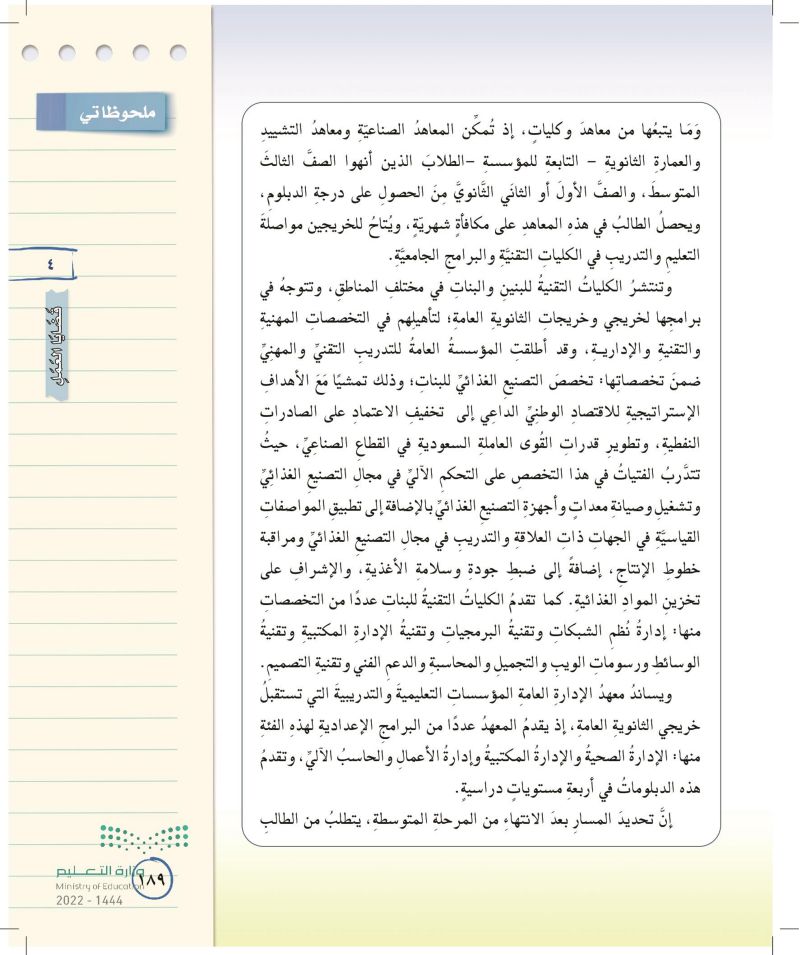 ملحوظاتي
وَمَا يتبعُها من معاهدَ وكلياتٍ، إذ تُمكِّن المعاهدُ الصناعيّة ومعاهدُ التشييدِ
والعمارةِ الثانويةِ – التابعةِ للمؤسسةِ –الطلابَ الذين أنهوا الصفَّ الثالثَ
المتوسطَ، والصفَّ الأولَ أو الثاني الثَّانويَّ مِنَ الحصولِ على درجةِ الدبلوم،
ويحصلُ الطالبُ في هذهِ المعاهدِ على مكافأةٍ شهريّةٍ، ويُتاحُ للخريجين مواصلةَ
التعليمِ والتدريبِ في الكلياتِ التقنيَّةِ والبرامجِ الجامعيَّةِ.
وتنتشرُ الكلياتُ التقنيةُ للبنينِ والبناتِ في مختلفِ المناطقِ، وتتوجهُ في
برامجِها لخريجي وخريجاتِ الثانويةِ العامةِ؛ لتأهيلِهم في التخصصاتِ المهنيةِ
والتقنيةِ والإداريةِ، وقد أطلقتِ المؤسسةُ العامةُ للتدريبِ التقنيِّ والمهنيِّ
ضمنَ تخصصاتِها: تخصصَ التصنيعِ الغذائيِّ للبناتِ؛ وذلك تمشيًا مَعَ الأهدافِ
الإستراتيجيةِ للاقتصادِ الوطنيِّ الداعي إلى تخفيفِ الاعتمادِ على الصادراتِ
النفطيةِ، وتطويرِ قدراتِ القُوى العاملةِ السعوديةِ في القطاعِ الصناعيِّ، حيثُ
تتدَّربُ الفتياتُ في هذا التخصصِ على التحكمِ الآليِّ في مجالِ التصنيعِ الغذائِيِّ
وتشغيلِ وصيانةِ معداتٍ وأجهزةِ التصنيعِ الغذائيِّ بالإضافةِ إلى تطبيقِ المواصفاتِ
القياسيَّةِ في الجهاتِ ذاتِ العلاقةِ والتدريبِ في مجالِ التصنيعِ الغذائيِّ ومراقبةِ
خطوطِ الإنتاجِ، إضافةً إلى ضبطِ جودةِ وسلامةِ الأغذيةِ، والإشرافِ على
تخزينِ الموادِ الغذائيةِ. كما تقدمُ الكلياتُ التقنيةُ للبناتِ عددًا من التخصصاتِ
منها: إدارةُ نُظمِ الشبكاتِ وتقنيةُ البرمجياتِ وتقنيةُ الإدارةِ المكتبيةِ وتقنيةُ
الوسائطِ ورسوماتِ الويبِ والتجميلِ والمحاسبةِ والدعمِ الفني وتقنيةِ التصميمِ.
ويساندُ معهدُ الإدارةِ العامةِ المؤسساتِ التعليميةَ والتدريبيةَ التي تستقبلُ
خريجي الثانويةِ العامةِ، إذ يقدمُ المعهدُ عددًا من البرامجِ الإعداديةِ لهذهِ الفئةِ
منها: الإدارةُ الصحيةُ والإدارةُ المكتبيةُ وإدارةُ الأعمالِ والحاسبُ الآليِّ، وتقدمُ
هذه الدبلوماتُ في أربعةِ مستوياتٍ دراسيةٍ.
إنَّ تحديدَ المسارِ بعدَ الانتهاءِ من المرحلةِ المتوسطةِ، يتطلبُ من الطالبِ
٤
قَضَايَا العَمَلِ
وزارة التعليم
Ministry of Education
2022 - 1444
١٨٩